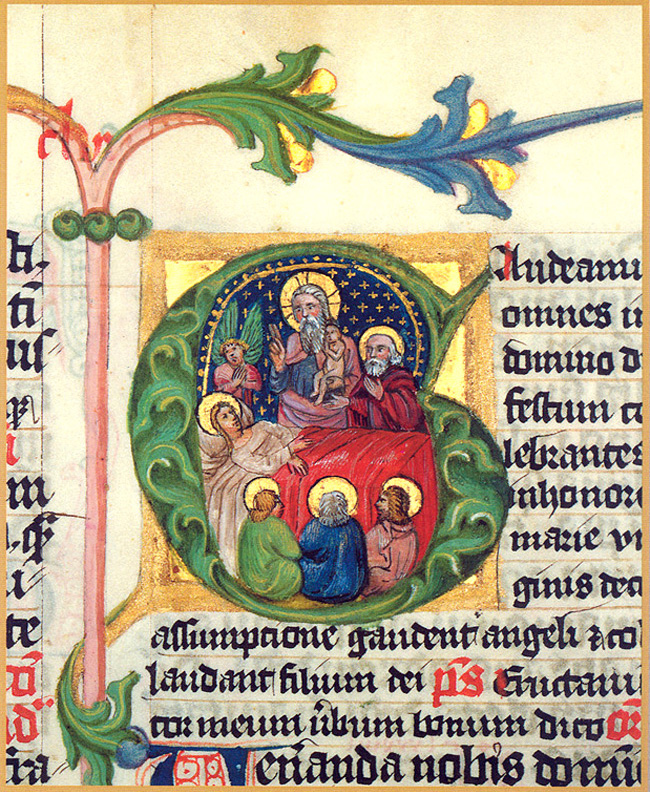 GAudeamu
omnes i
domino d
festum ce
lebrantes
inhonore
marie vi
ginis de
assumptione gaudent angeli ⁊ col
laudant filium dei p̄s Eructaui
cor meum ūbum bonum dico or̄
Ven̄anda nobis domi